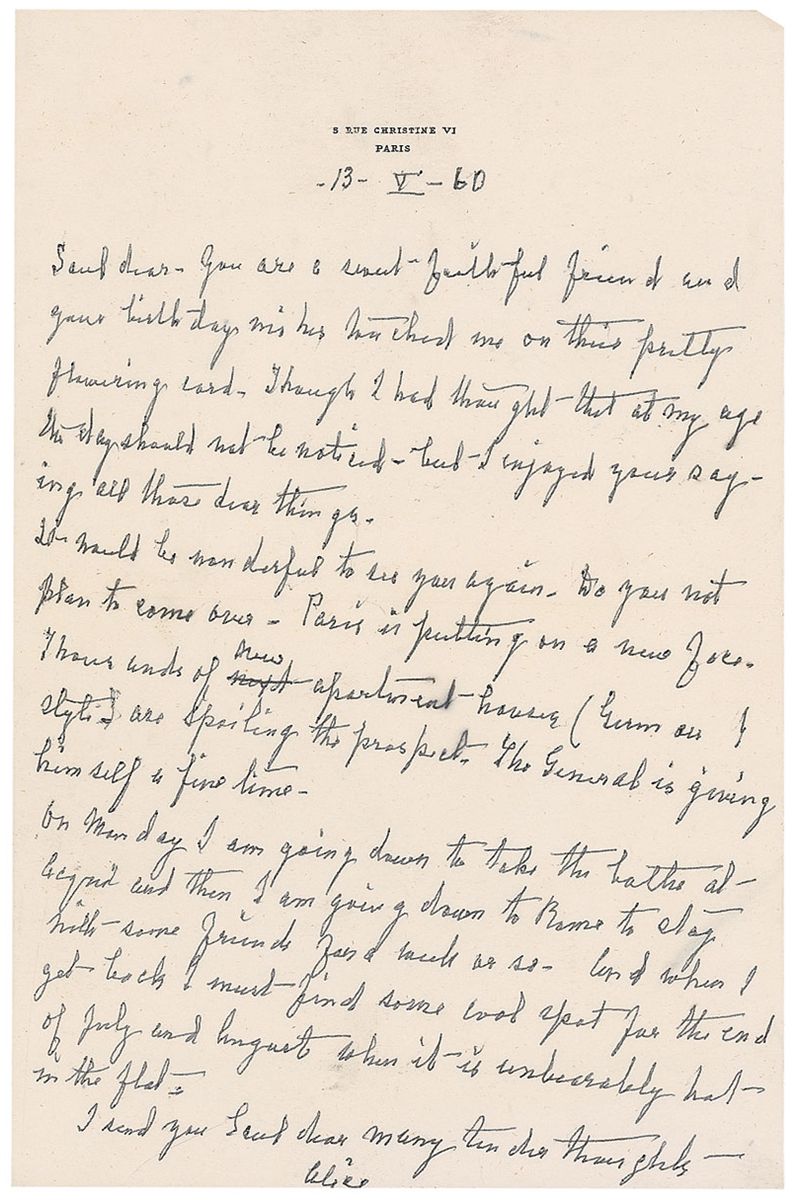 5 RUE CHRISTINE VI
PARIS
-13- V - 60
Saul dear - You are a sweet faithful friend and
your birthday wishes touched me on this pretty
flowering card - Though I had thought that at my age
the day should not be noticed - but I enjoyed your say-
ing all those dear things.
It would be wonderful to see you again - Do you not
plan to come over - Paris is putting on a new face.
Thousands of new apartment houses (German
style) are spoiling the prospect. The General is giving
himself a fine time -
On Monday I am going down to take the baths at
Acqui and then I am going down to Rome to stay
with some friends for a week or so - And when I
get back I must find some cool spot for the end
of July and August when it is unbearably hot
in the flat -
I send you Saul dear many tender thoughts -
Alice